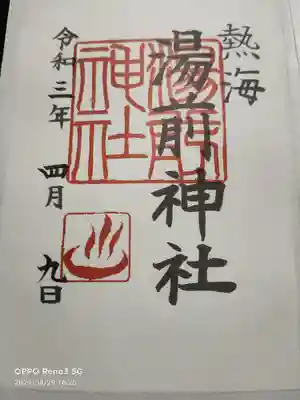 熱海
湯前神社
湯前
神社
令和三年
四月
九日
OPPO Reno3 5G